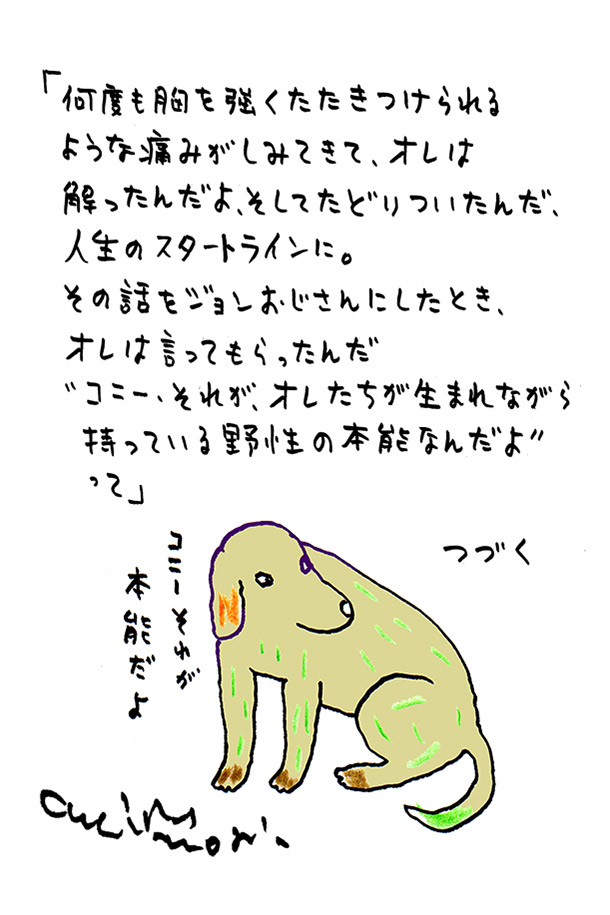 「何度も胸を強くたたきつけられる
ような痛みがしみてきて、オレは
解ったんだよ、そしてたどりついたんだ、
人生のスタートラインに。
その話をジョンおじさんにしたとき、
オレは言ってもらったんだ
“コニー、それが、オレたちが生まれながら
持っている野性の本能なんだよ”
って」
つづく
コニーそれが
本能だよ